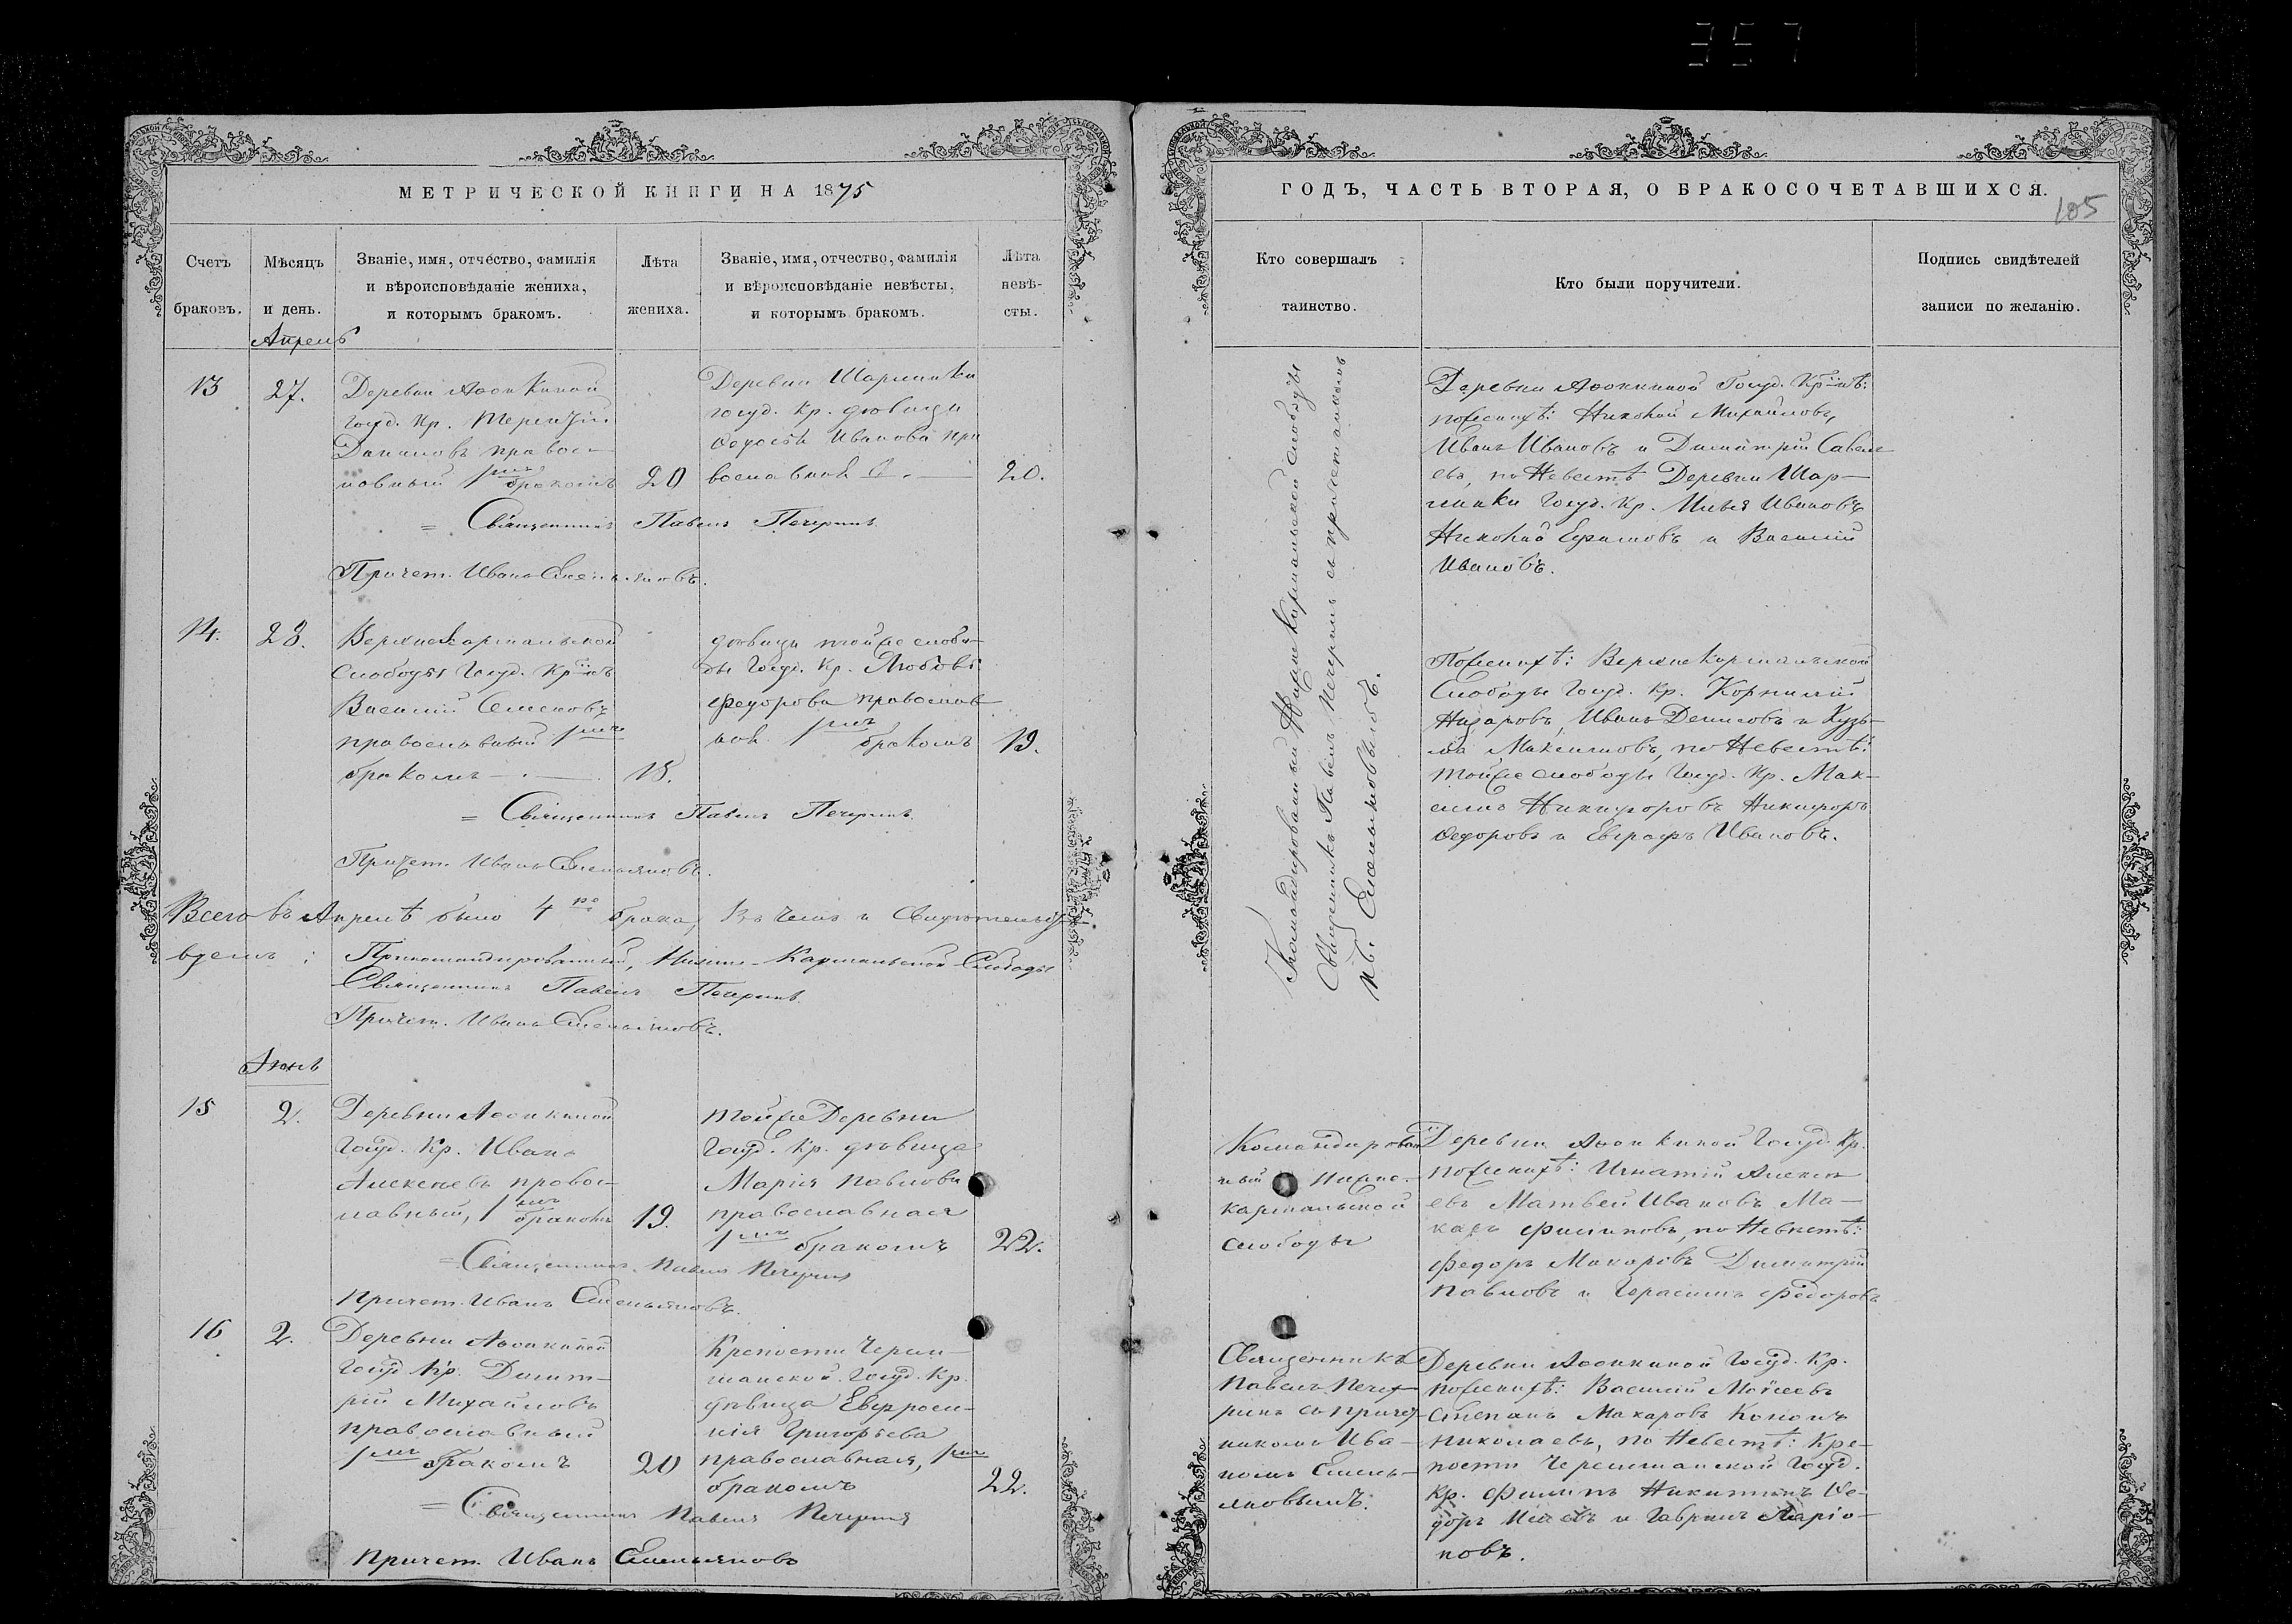 357
МЕТРИЧЕСКОЙ КНИГИ НА 1875
Счетъ браковъ.
Мѣсяцъ и день.
Званіе, имя, отчество, фамилія и вѣроисповѣданіе жениха, и которымъ бракомъ.
Лѣта жениха.
Званіе, имя, отчество, фамилія и вѣроисповѣданіе невѣсты, и которымъ бракомъ.
Лѣта невѣ-
сты.
Апрель
13
27.
Деревни Аѳонкиной
Госуд. Кр. Терентій
Даниловъ правос-
лавный 1мъ бракомъ
20
Деревни Шарминки
госуд. Кр. дѣвица
Ѳедосья Иванова пра
вославная
20.
= Священникъ Павелъ Печеринъ
Причет. Иванъ Емельяновъ.
14.
28.
Верхнекармальской
Слободы Госуд. Кр-нъ
Василий Семеновъ
православный 1мъ
бракомъ
18.
дѣвица тойже слобо-
ды Госуд. Кр. Любовь
Федорова православ
ная 1мъ бракомъ
19.
= Священникъ Павелъ Печеринъ
Причет. Иванъ Емельяновъ.
Всего въ Апрелѣ было 4ре брака, въ чемъ и Свидѣтельст
вуемъ:
Прикомандированный, Нижне-Кармальской Слободы
Священникъ Павелъ Печеринъ
Причет. Иванъ Емельяновъ.
Іюнь
15
2.
Деревни Аѳонкиной
Госуд. Кр. Иванъ
Алексѣевъ правос-
лавный, 1мъ бракомъ
19.
тойже Деревни
Госуд. Кр. дѣвица
Марія Павлова
православная
1мъ бракомъ
22.
= Священникъ Павелъ Печеринъ
Причет. Иванъ Емельяновъ.
16
2.
Деревни Аѳонкиной
Госуд. Кр. Димит-
рій Михайловъ
православный
1мъ бракомъ
20
Крепости Черем-
шанской Госуд. Кр.
дѣвица Евфроси-
нія Григорьева
православная, 1мъ
бракомъ
22.
= Священникъ Павелъ Печеринъ
Причет. Иванъ Емельяновъ
ГОДЪ, ЧАСТЬ ВТОРАЯ, О БРАКОСОЧЕТАВШИХСЯ.
105
Кто совершалъ таинство.
Кто были поручители.
Подпись свидѣтелей записи по желанію.
Командированный Нижне Кармальской слободы
Священникъ Павелъ Печеринъ съ причетникомъ
Ив. Емельяновымъ.
Деревни Аѳонкиной Госуд. Кр-нѣ:
поженихѣ: Николай Михайловъ,
Иванъ Ивановъ и Димитрій Савель
евъ, по Невестѣ Деревни Шар-
минки Госуд. Кр. Илья Ивановъ
Николай Ефимовъ и Василий
Ивановъ.
Поженихѣ: Верхне Кармальской
Слободы Госуд. Кр. Корнилий
Назаровъ, Иванъ Денисовъ и Кузь-
ма Максимовъ, по Невестѣ:
тойже слободы Госуд. Кр. Мак-
симъ Никифоровъ Никифоръ
Ѳедоровъ и Евграфъ Ивановъ.
Командирован
ный Нижне-
кармальской
слободы
Деревни Аѳонкиной Госуд. Кр.
поженихѣ: Игнатій Алексѣ
евъ Матвей Ивановъ Ма-
каръ Филиповъ, по Невестѣ:
Федоръ Макаровъ Димитрій
Павловъ и Герасимъ Федоровъ
Священникъ
Павелъ Пече-
ринъ съ причет-
никомъ Ива-
номъ Емель-
яновымъ.
Деревни Аѳонкиной Госуд. Кр.
поженихѣ: Василий Моисеевъ
Степанъ Макаровъ Кононъ
Николаевъ, по Невестѣ: Кре-
пости Черемшанской Госуд.
Кр. Филипъ Никитинъ Ѳе-
доръ и Гаврилъ Ларіо-
новъ.